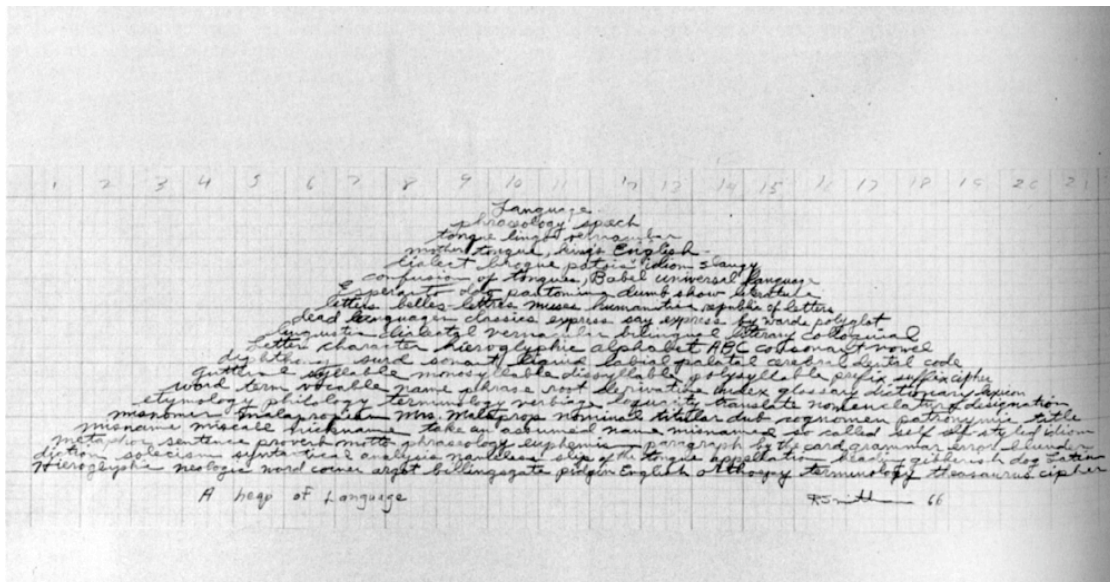 1 2 3 4 5 6 7 8 9 10 11 12 13 14 15 16 17 18 19 20 21
Language
phraseology speech
tongue lingo vernacular
mother tongue, King's English
dialect brogue patois idiom slangy
confusion of tongues, Babel universal language
Esperanto Ido pantomime dumb show literature
letters belles-lettres muses humanities republic of letters
dead languages classics express say express by words polyglot
linguistic dialectal vernacular bilingual literary colloquial
letters character hieroglyphic alphabet ABC consonant vowel
diphthong surd sonant liquid labial palatal cerebral dental code
guttural syllable monosyllable dissyllable polysyllable prefix suffix cipher
word term vocable name phrase root derivative index glossary dictionary lexicon
etymology philology terminology verbiage loquacity translate nomenclature of designation
misnomer malapropism Mrs. Malaprop nominal titular dub cognomen patronymic title
misname miscall nickname take an assumed name misnamed so called self styled idiom
metaphor sentence proverb motto phraseology euphemism paragraph by the card grammar error blunder
diction solecism syntactical analysis nameless slip of the tongue appellation gibberish dog Latin
Hieroglyphic neologic word coiner argot billingsgate pidgin English orthoepy terminology thesaurus cipher
A heap of Language
R Smithson 66